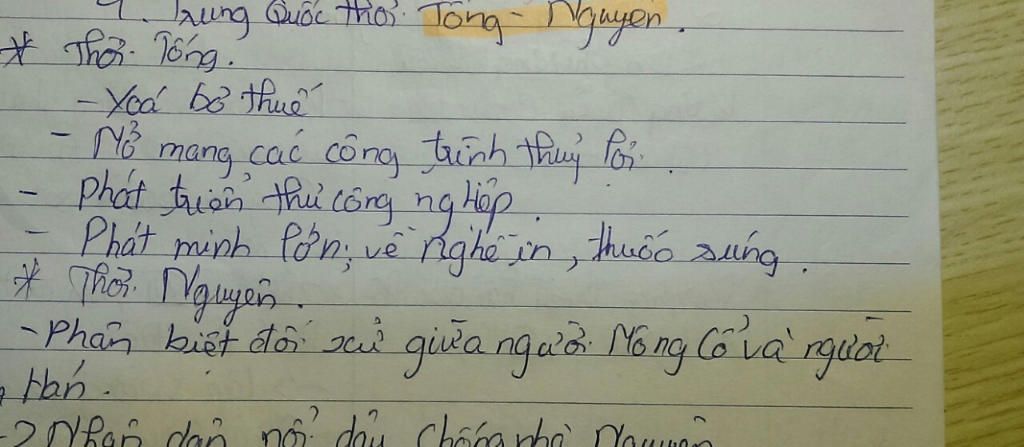 4. Trung Quốc thời Tống - Nguyên.
* Thời Tống.
- Xoá bỏ thuế
- Mở mang các công trình thuỷ lợi.
- Phát triển thủ công nghiệp.
- Phát minh lớn; về nghề in, thuốc súng.
* Thời Nguyên.
- Phân biệt đối xử giữa người Mông Cổ và người
Hán.
-> Nhân dân nổi dậy chống nhà Nguyên